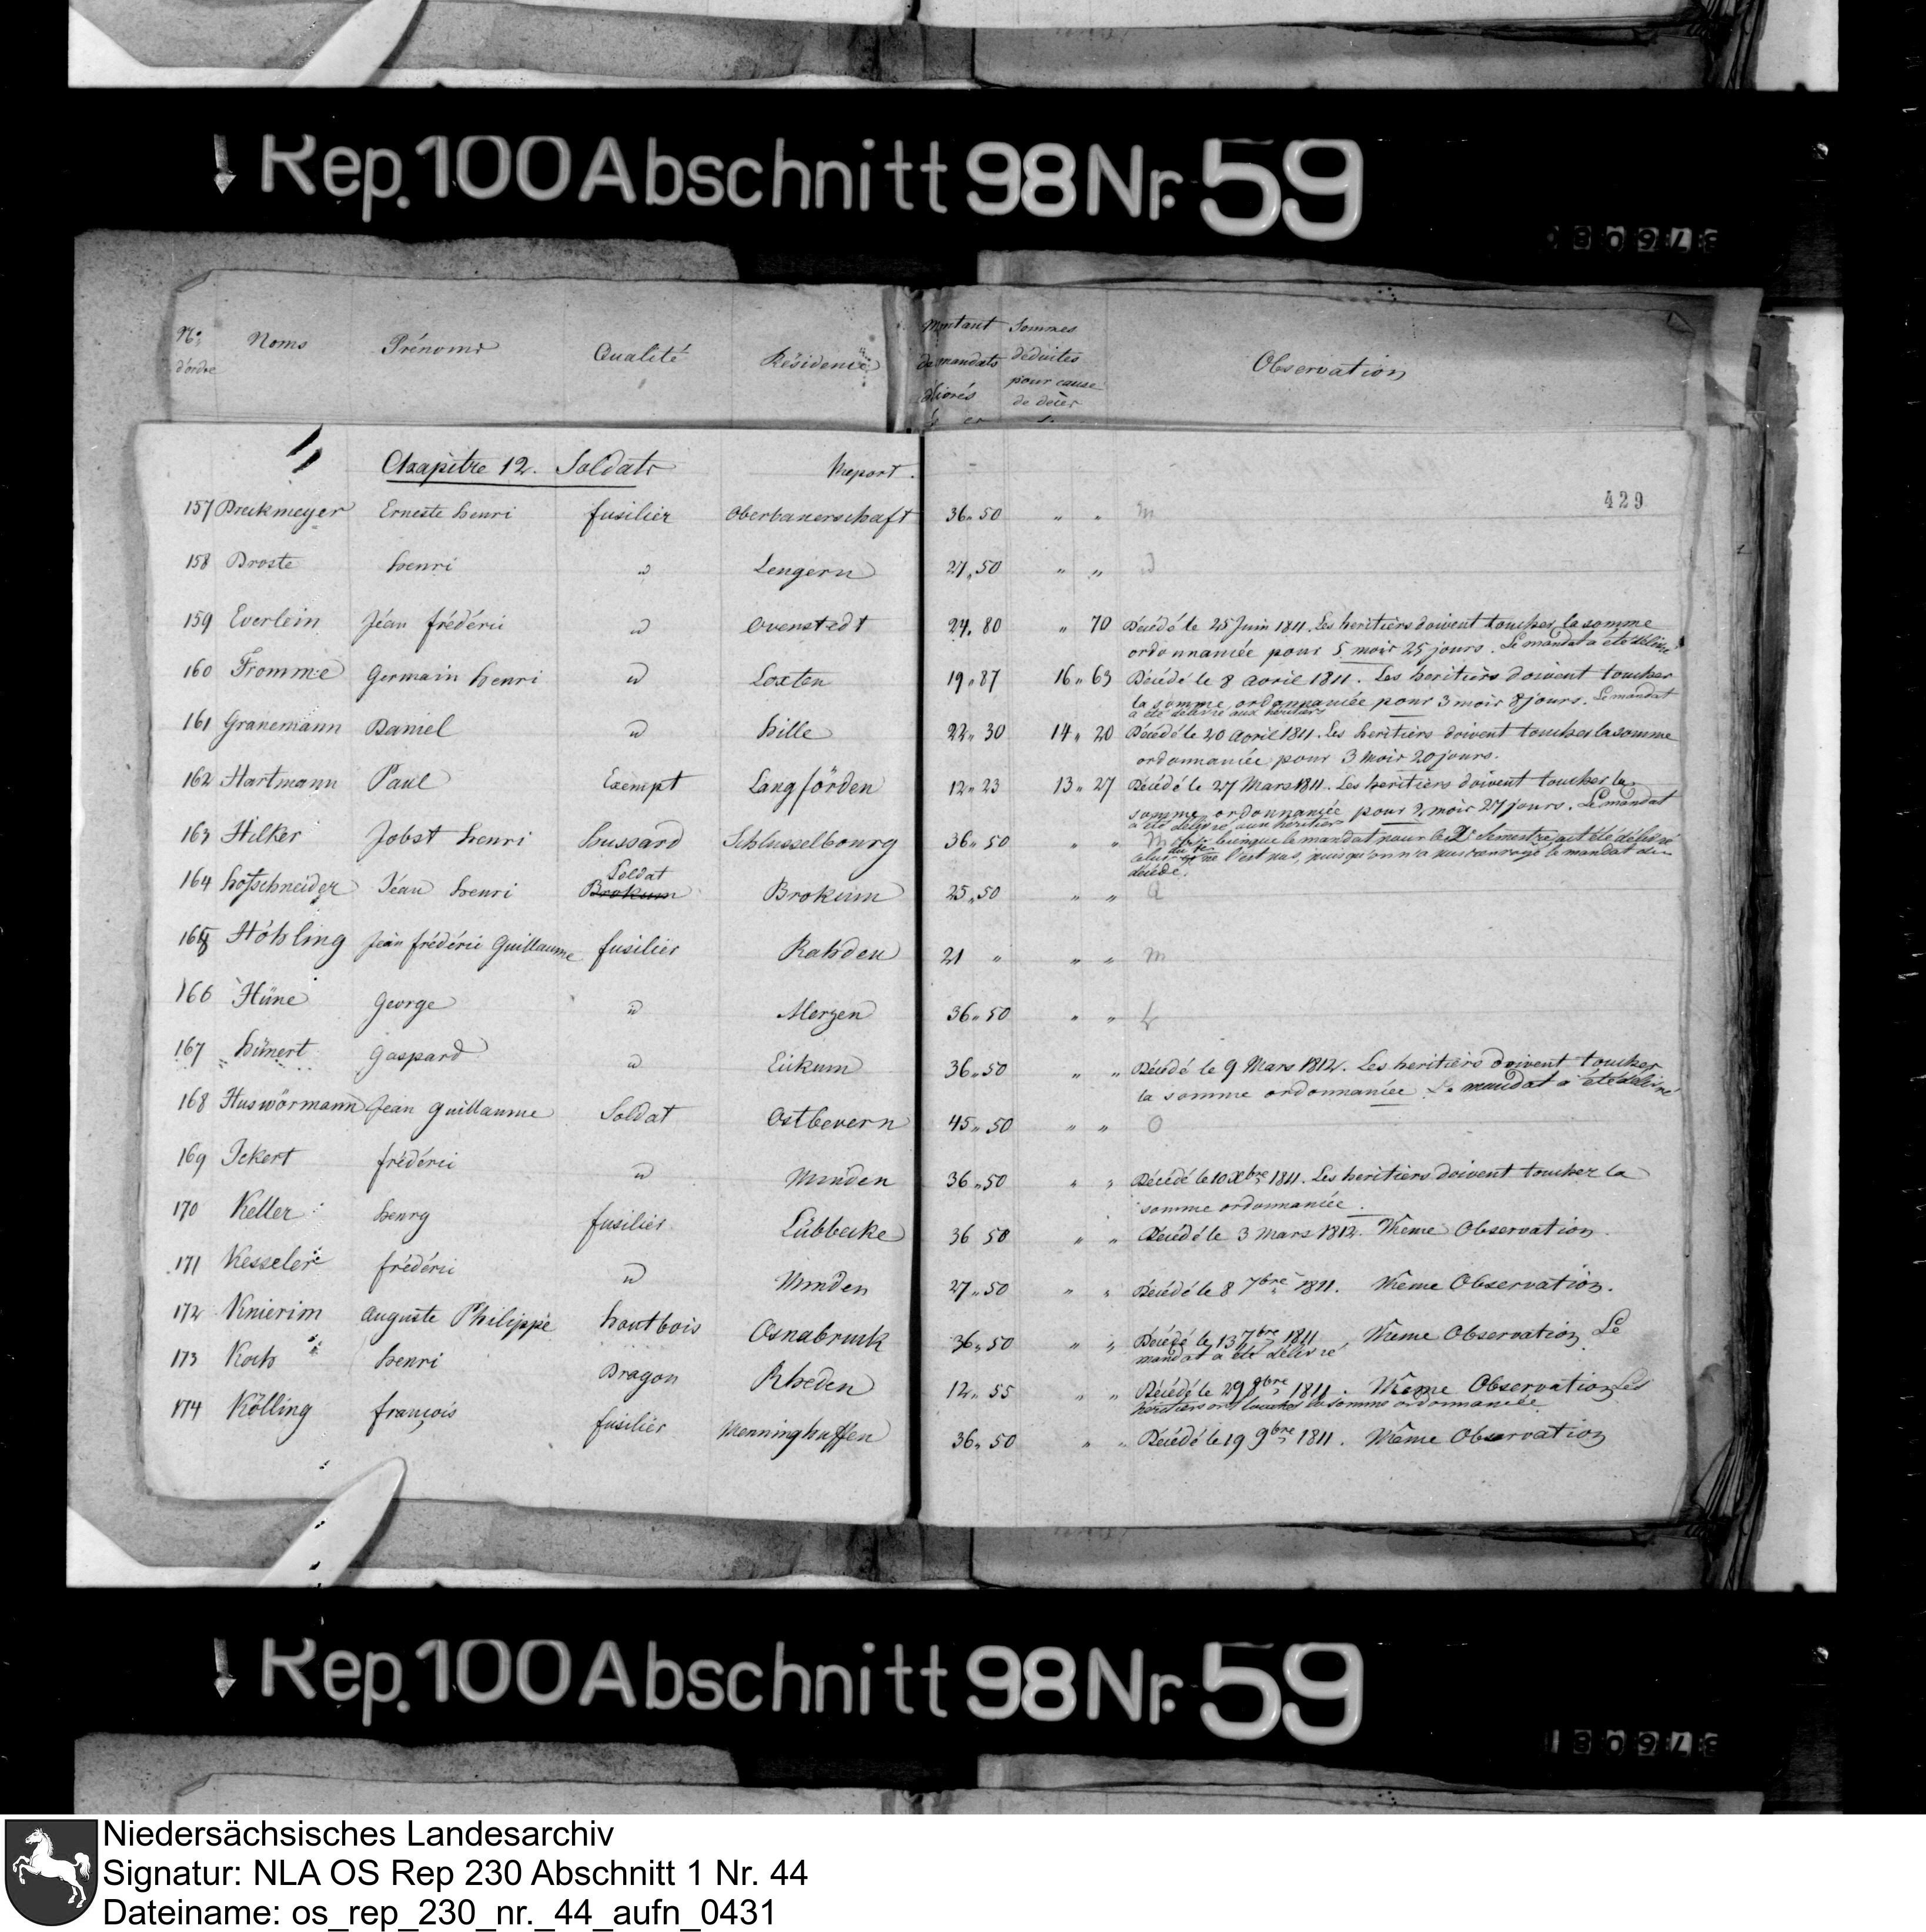 Rep. 100 Abschnitt 98 Nr. 59
No. d'ordre Noms Prénoms Qualité Résidence Montant de mandats délivrés Sommes déduites pour cause de décès Observation
Chapitre 12. Soldats Report.
429
157 Dreckmeyer Erneste henri fusilier Oberbauerschaft 36 „ 50 „ „ m
158 Droste henri " Lengern 27 „ 50 „ „
159 Everlein Jéan frédéric " Ovenstedt 24 „ 80 „ 70 Décédé le 25 Juin 1811. Les heritiers doivent toucher la somme
ordonnancée pour 5 mois 25 jours. Le mandat a été délivré
160 Fromme Germain henri " Loxten 19 „ 87 16 „ 63 Décédé le 8 avril 1811. Les heritiers doivent toucher
la somme ordonnancée pour 3 mois 8 jours. Le mandat
a été délivré aux heritiers
161 Granemann Daniel " hille 22 „ 30 14 „ 20 Décédé le 20 avril 1811. Les heritiers doivent toucher la somme
ordonnancée pour 3 mois 20 jours.
162 Hartmann Paul Exempt Langförden 12 „ 23 13 „ 27 Décédé le 27 Mars 1811. Les heritiers doivent toucher la
somme ordonnancée pour 2 mois 27 jours. Le mandat
a été délivré aux heritiers
163 Hilker Jobst henri hussard Schlusselbourg 36 „ 50 „ „ le mandat pour le 2e Semestre ait été délivré
ne l'est pas, puisqu'on n'a pas renvoyé le mandat du
décédé.
164 hofschneider Jéan henri Soldat Brokum Brokum 25 „ 50 „ „
165 Höhling Jéan frédéric Guillaume fusilier Rahden 21 „ „ „ m
166 Hüne George " Merzen 36 „ 50 „ „
167 hünert Gaspard " Eickum 36 „ 50 „ „ Décédé le 9 Mars 1812. Les heritiers doivent toucher
la somme ordonnancée. Le mandat a été délivré
168 Huswörmann Jean Guillaume Soldat Ostbevern 45 „ 50 „ „ O
169 Ickert frédéric " Minden 36 „ 50 „ „ Décédé le 10 Xbre 1811. Les heritiers doivent toucher la
somme ordonnancée.
170 Keller henry fusilier Lübbecke 36 50 „ „ Décédé le 3 Mars 1812. Même Observation.
171 Kesseler frédéric " Minden 27 „ 50 „ „ Décédé le 8 7bre 1811. Même Observation.
172 Knierim Auguste Philippe hautbois Osnabruck 36 „ 50 „ „ Décédé le 13 7bre 1811, Même Observation. Le
mandat a été délivré
173 Koch henri Dragon Rheden 12 „ 55 „ „ Décédé le 29 9bre 1811. Même Observation Les
héritiers ont touché la somme ordonnancée.
174 Kölling françois fusilier Menninghuffen 36 „ 50 „ „ Décédé le 19 9bre 1811. Même Observation
Rep. 100 Abschnitt 98 Nr. 59
Niedersächsisches Landesarchiv
Signatur: NLA OS Rep 230 Abschnitt 1 Nr. 44
Dateiname: os_rep_230_nr._44_aufn_0431